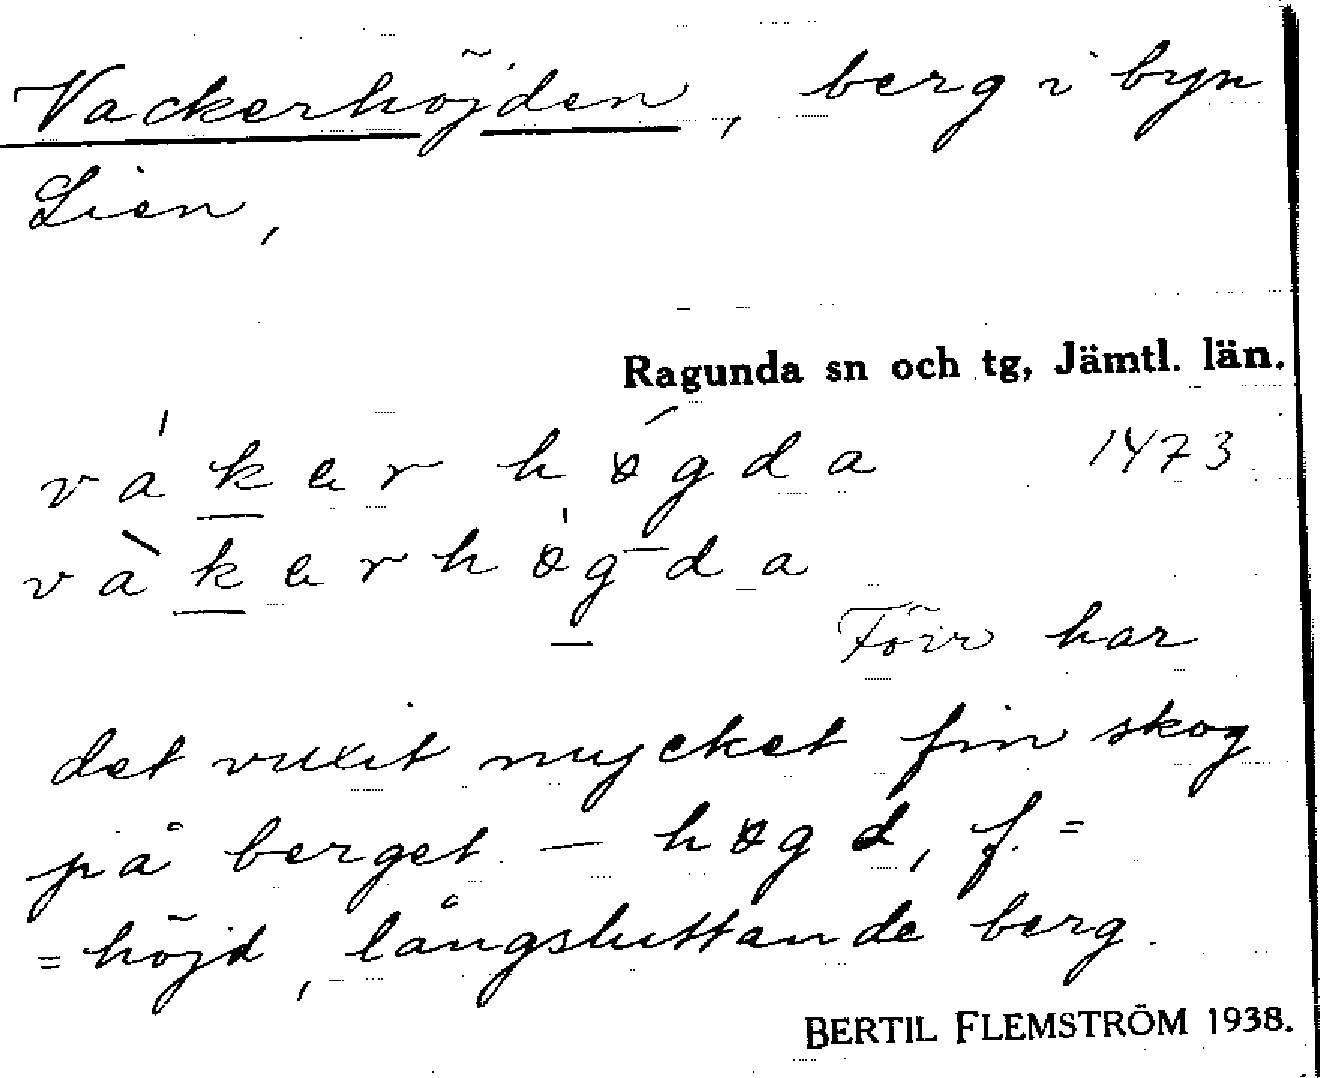 Vackerhöjden, berg i byn
Lien,
Ragunda sn och tg, Jämtl. län.
vákər høgda 1473
vàkərhøgda
Förr har
det vuxit mycket fin skog
på berget. — høgd, f. =
= höjd, långsluttande berg.
BERTIL FLEMSTRÖM 1938.